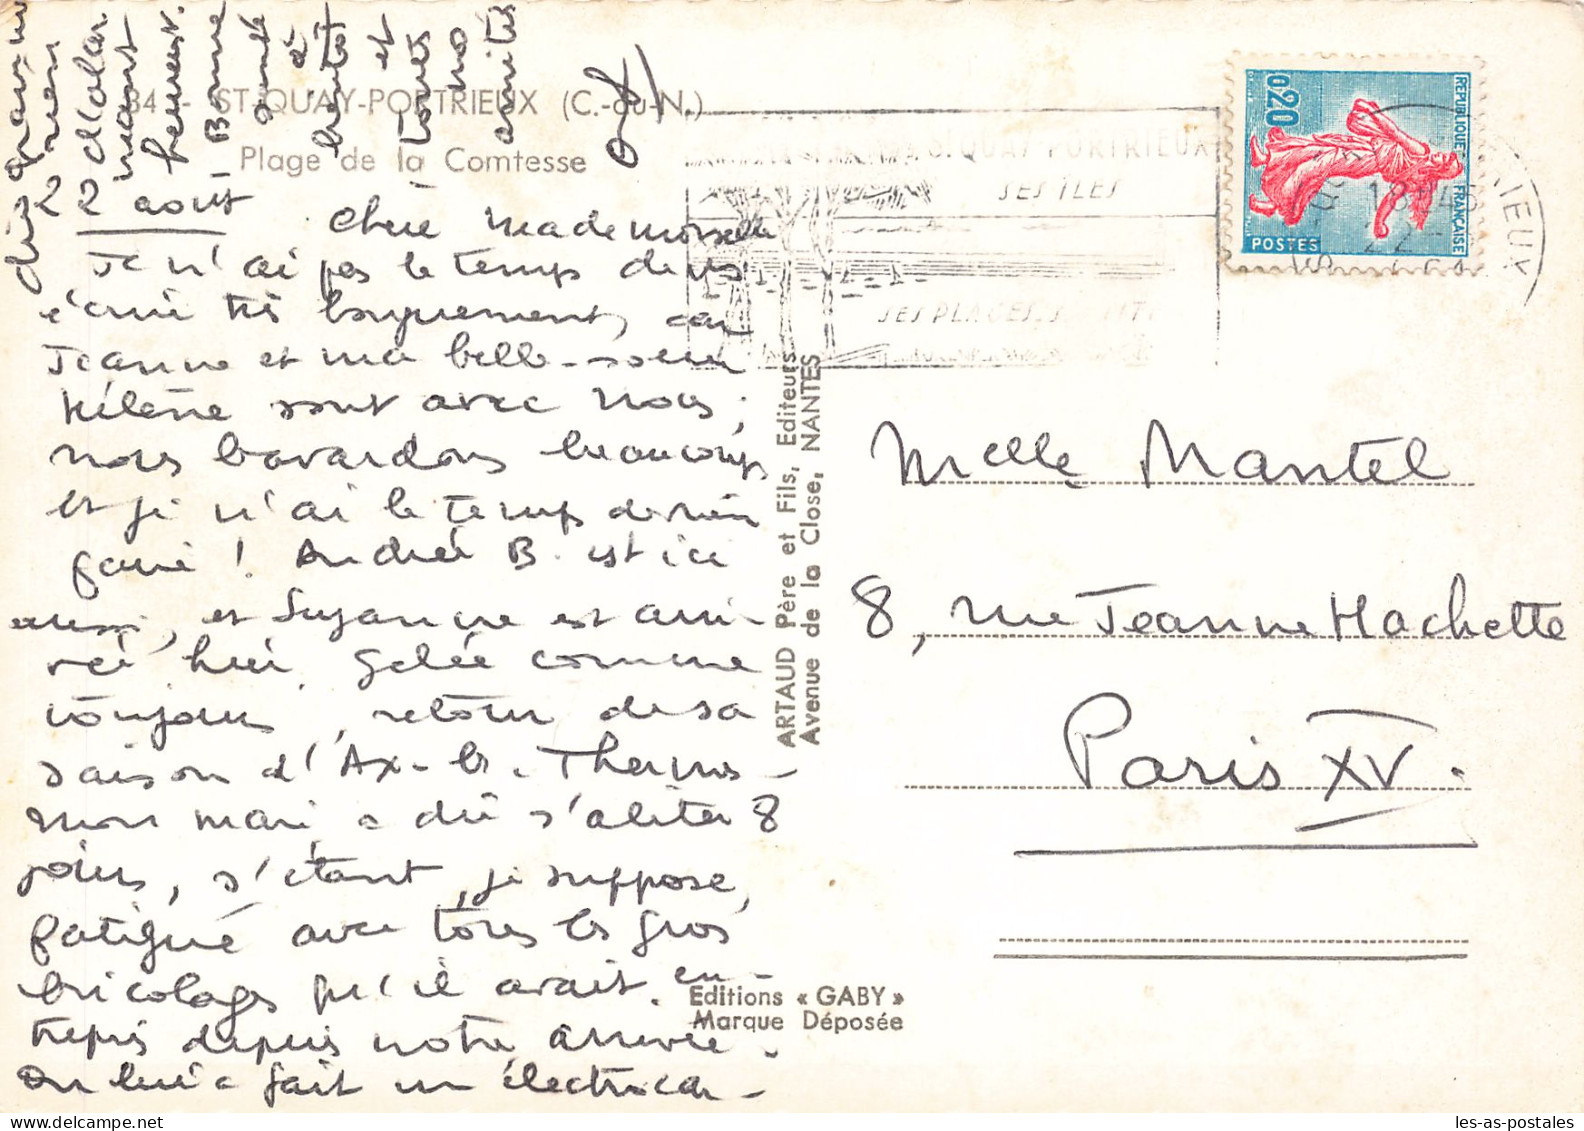 34 - ST-QUAY-PORTRIEUX (C.-du-N.)
Plage de la Comtesse
22 août
Chère Mademoiselle
Je n'ai pas le temps de vous
écrire très longuement, car
Jeanne et ma belle-soeur
Hélène sont avec nous,
nous bavardons beaucoup
et je n'ai le temps de rien
faire ! Andrée B. est ici
aussi, et Suzanne est arri-
vée hier, gelée comme
toujours, retour de sa
saison d'Ax-les-Thermes -
Mon mari a dû s'aliter 8
jours, s'étant, je suppose,
fatigué avec tous les gros
bricolages qu'il avait en-
trepris depuis notre arrivée.
On lui a fait un électrocar-
diogramme
2 rien
d'alar-
mant
heureust.
Bonne
santé
à
bientôt
et
toutes
nos
amitiés
Melle Mantel
8, rue Jeanne Hachette
Paris XV.
ARTAUD Père et Fils, Editeurs
Avenue de la Close, NANTES
Editions « GABY »
Marque Déposée
0,20
POSTES
REPUBLIQUE FRANÇAISE
ST QUAY PORTRIEUX
SES ILES
SES PLAGES
18H45
22 -